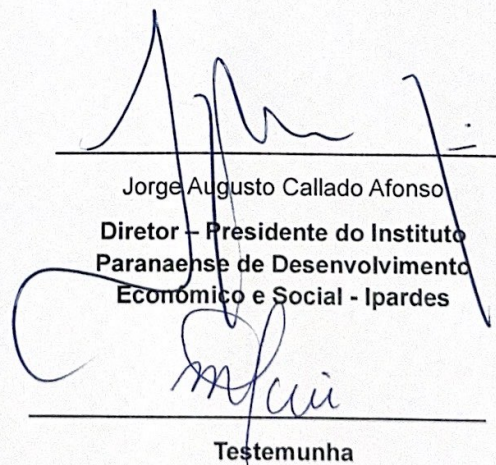 Jorge Augusto Callado Afonso
Diretor – Presidente do Instituto
Paranaense de Desenvolvimento
Econômico e Social - Ipardes
Testemunha